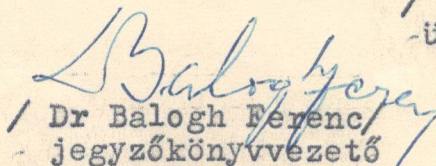 ü
Balogh Ferenc
/ Dr Balogh Ferenc/
jegyzőkönyvvezető